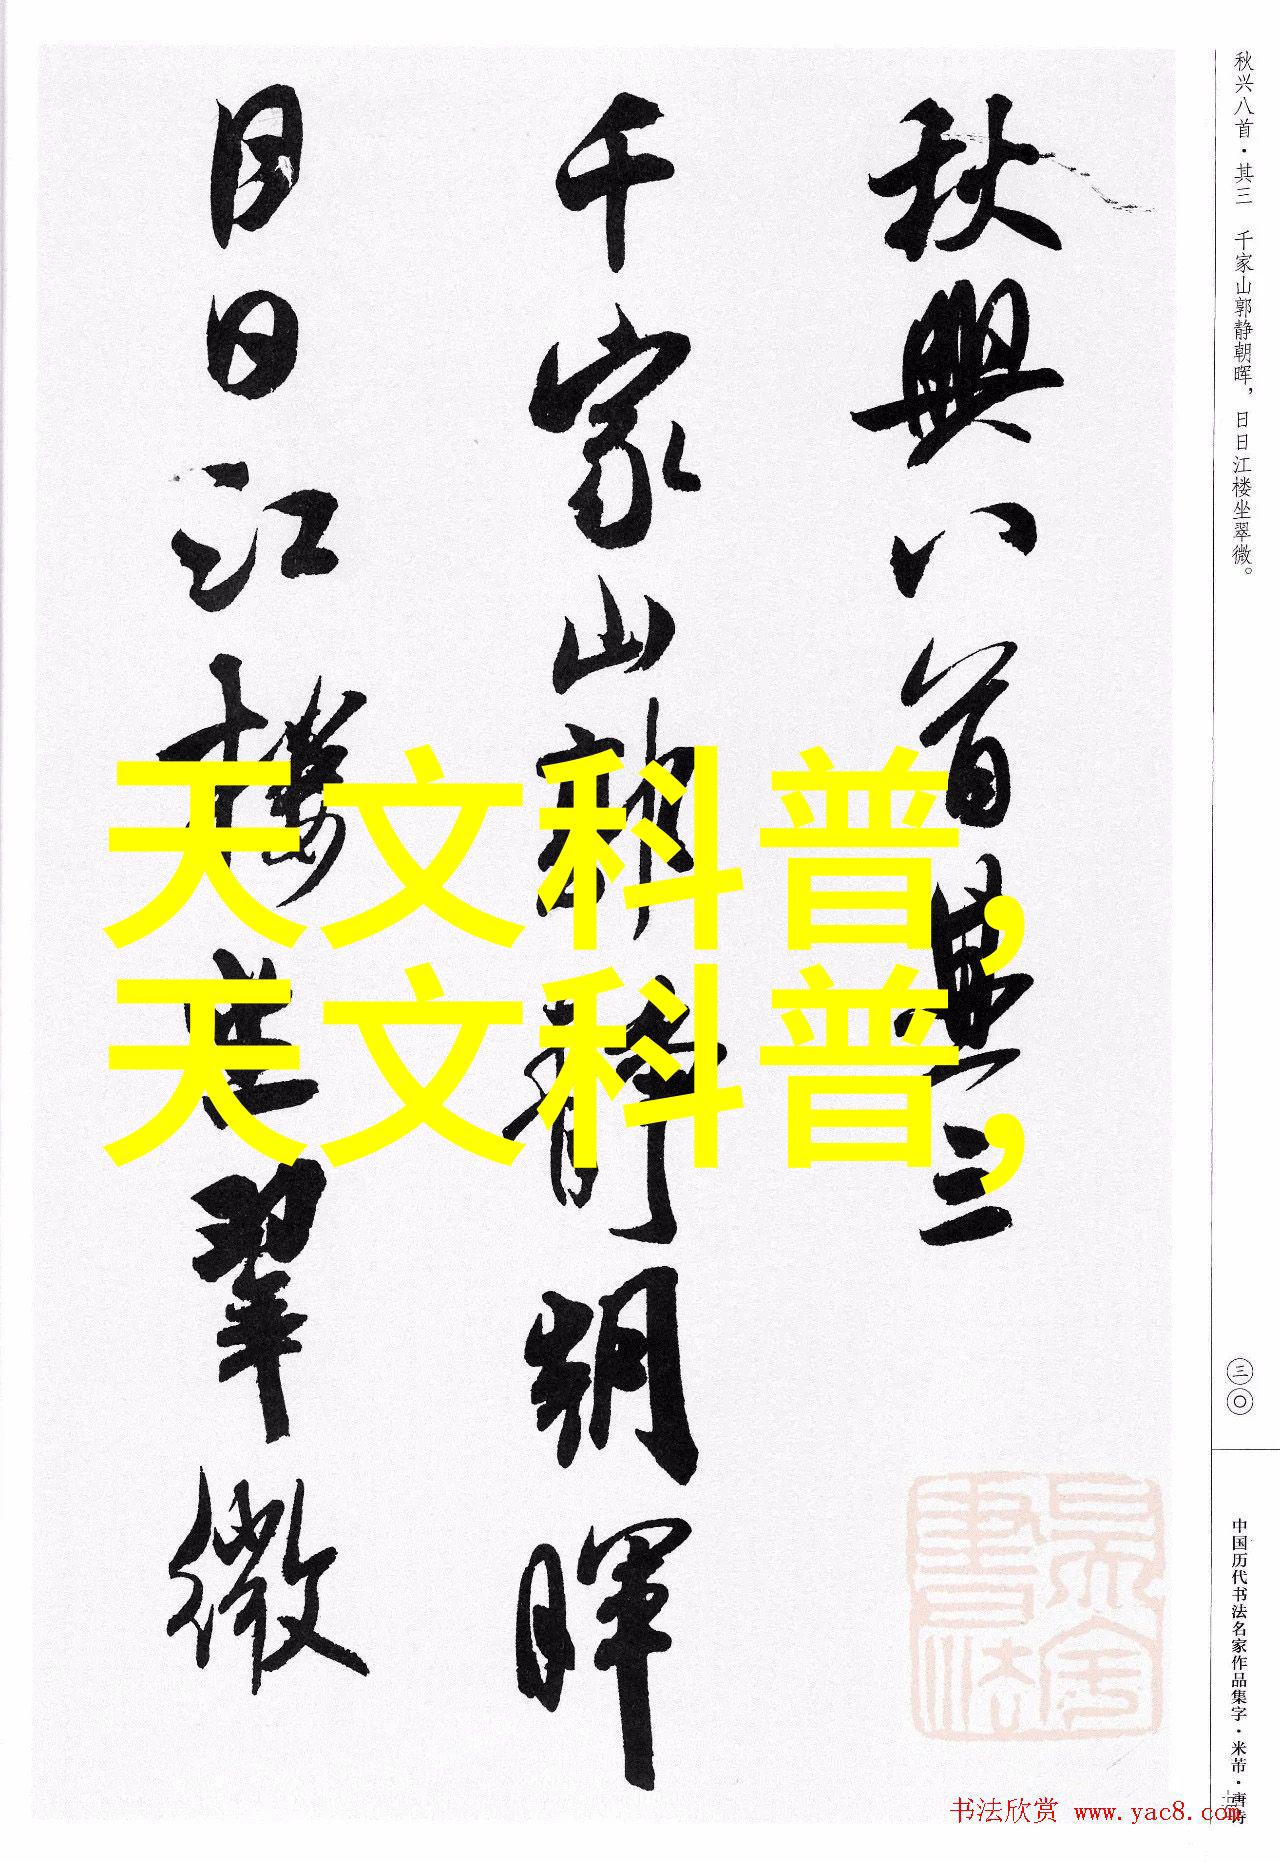 秋兴八首·其三 千家山郭静朝晖，日日江楼坐翠微。
三〇
中国历代书法名家作品集字·米芾·唐诗
秋興八首其三
千家山郭静朝暉
日日江樓坐翠微
天文科普,
天文科普,
书法欣赏 www.yac8.com